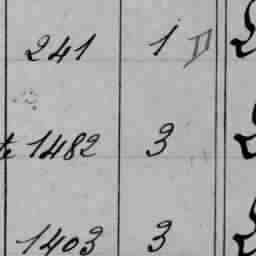 241 1 II
1482 3
1403 3